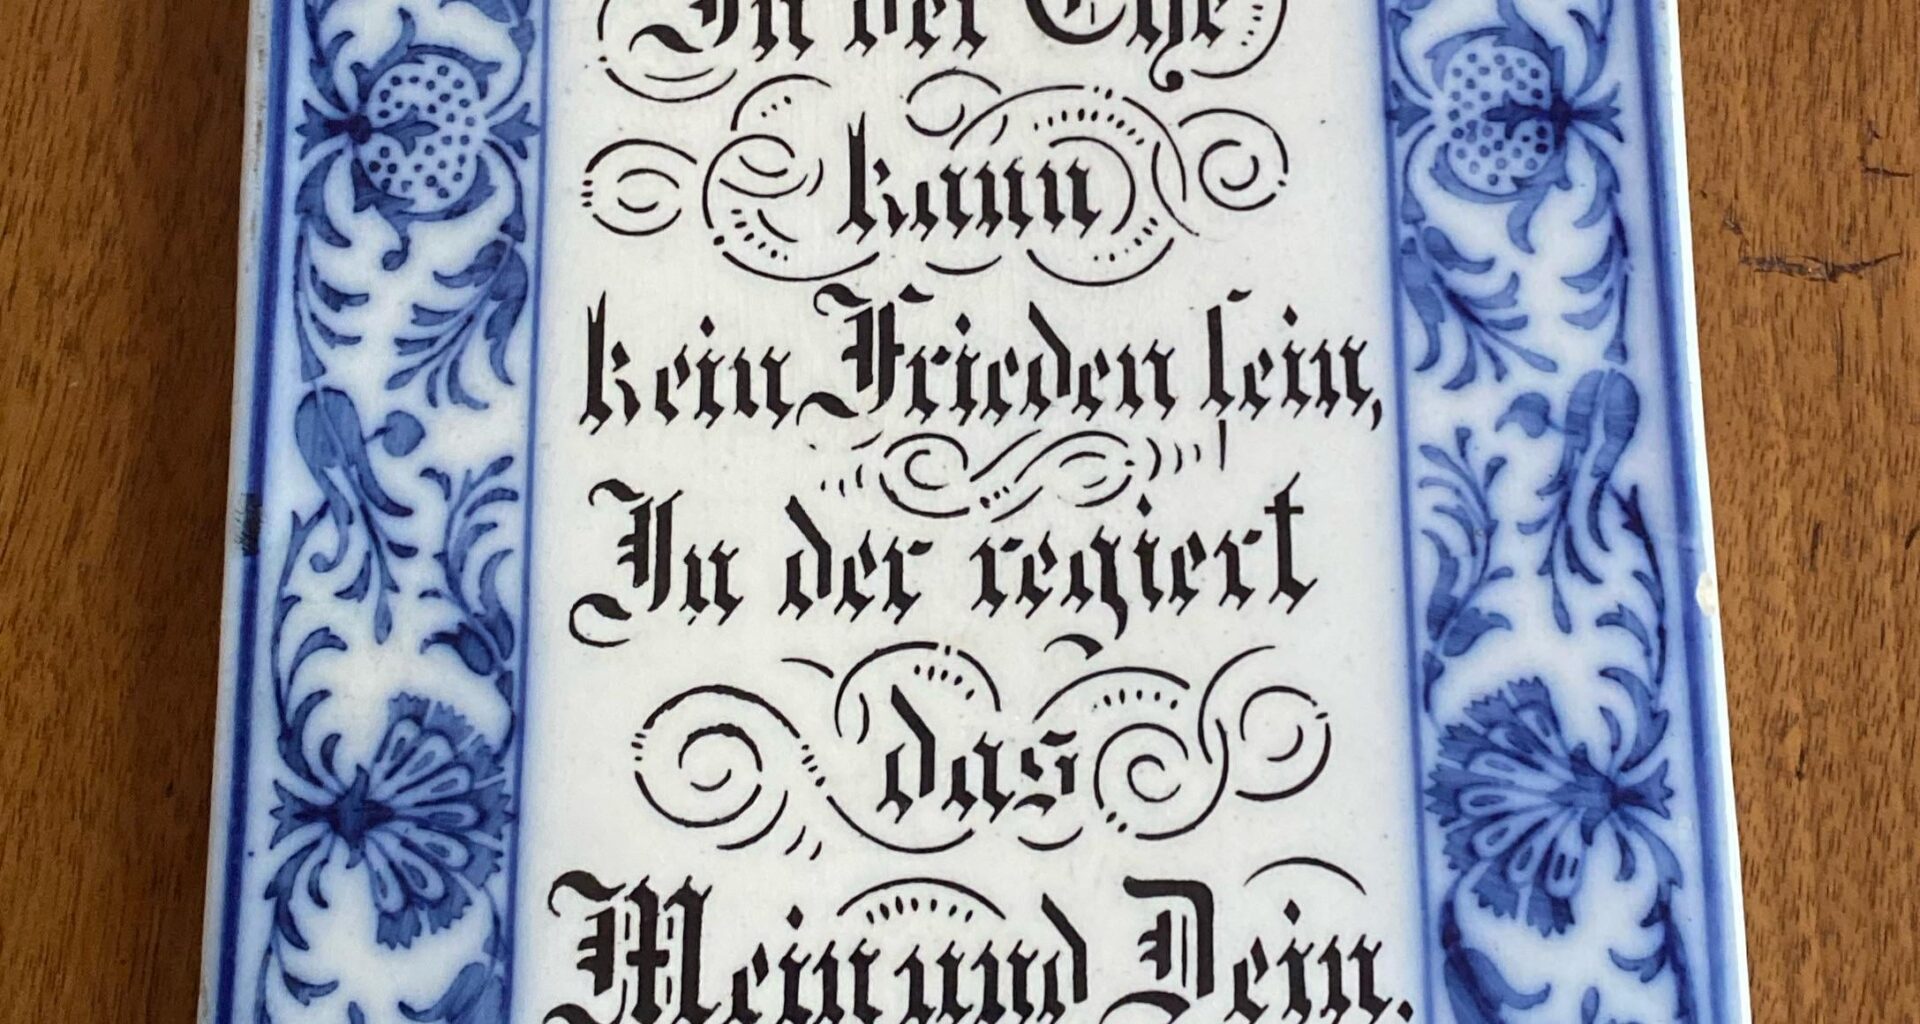 In der Ehe
kann
kein Frieden sein,
In der regiert
das
Mein und Dein.